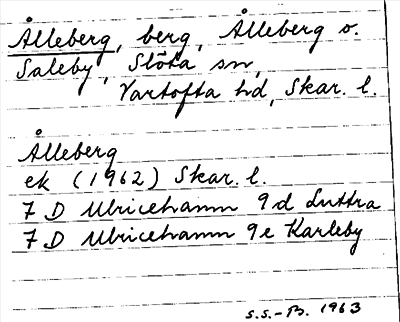 Ålleberg, berg, Ålleberg o.
Saleby, Slöta sn,
Vartofta hd, Skar. l.
Ålleberg
ek (1962) Skar. l.
7 D Ulricehamn 9 d Luttra
7 D Ulricehamn 9 e Karleby
S.S.-B. 1963